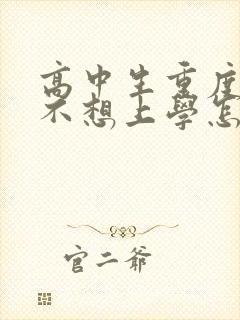 高中生重度
不想上學怎
官二爺